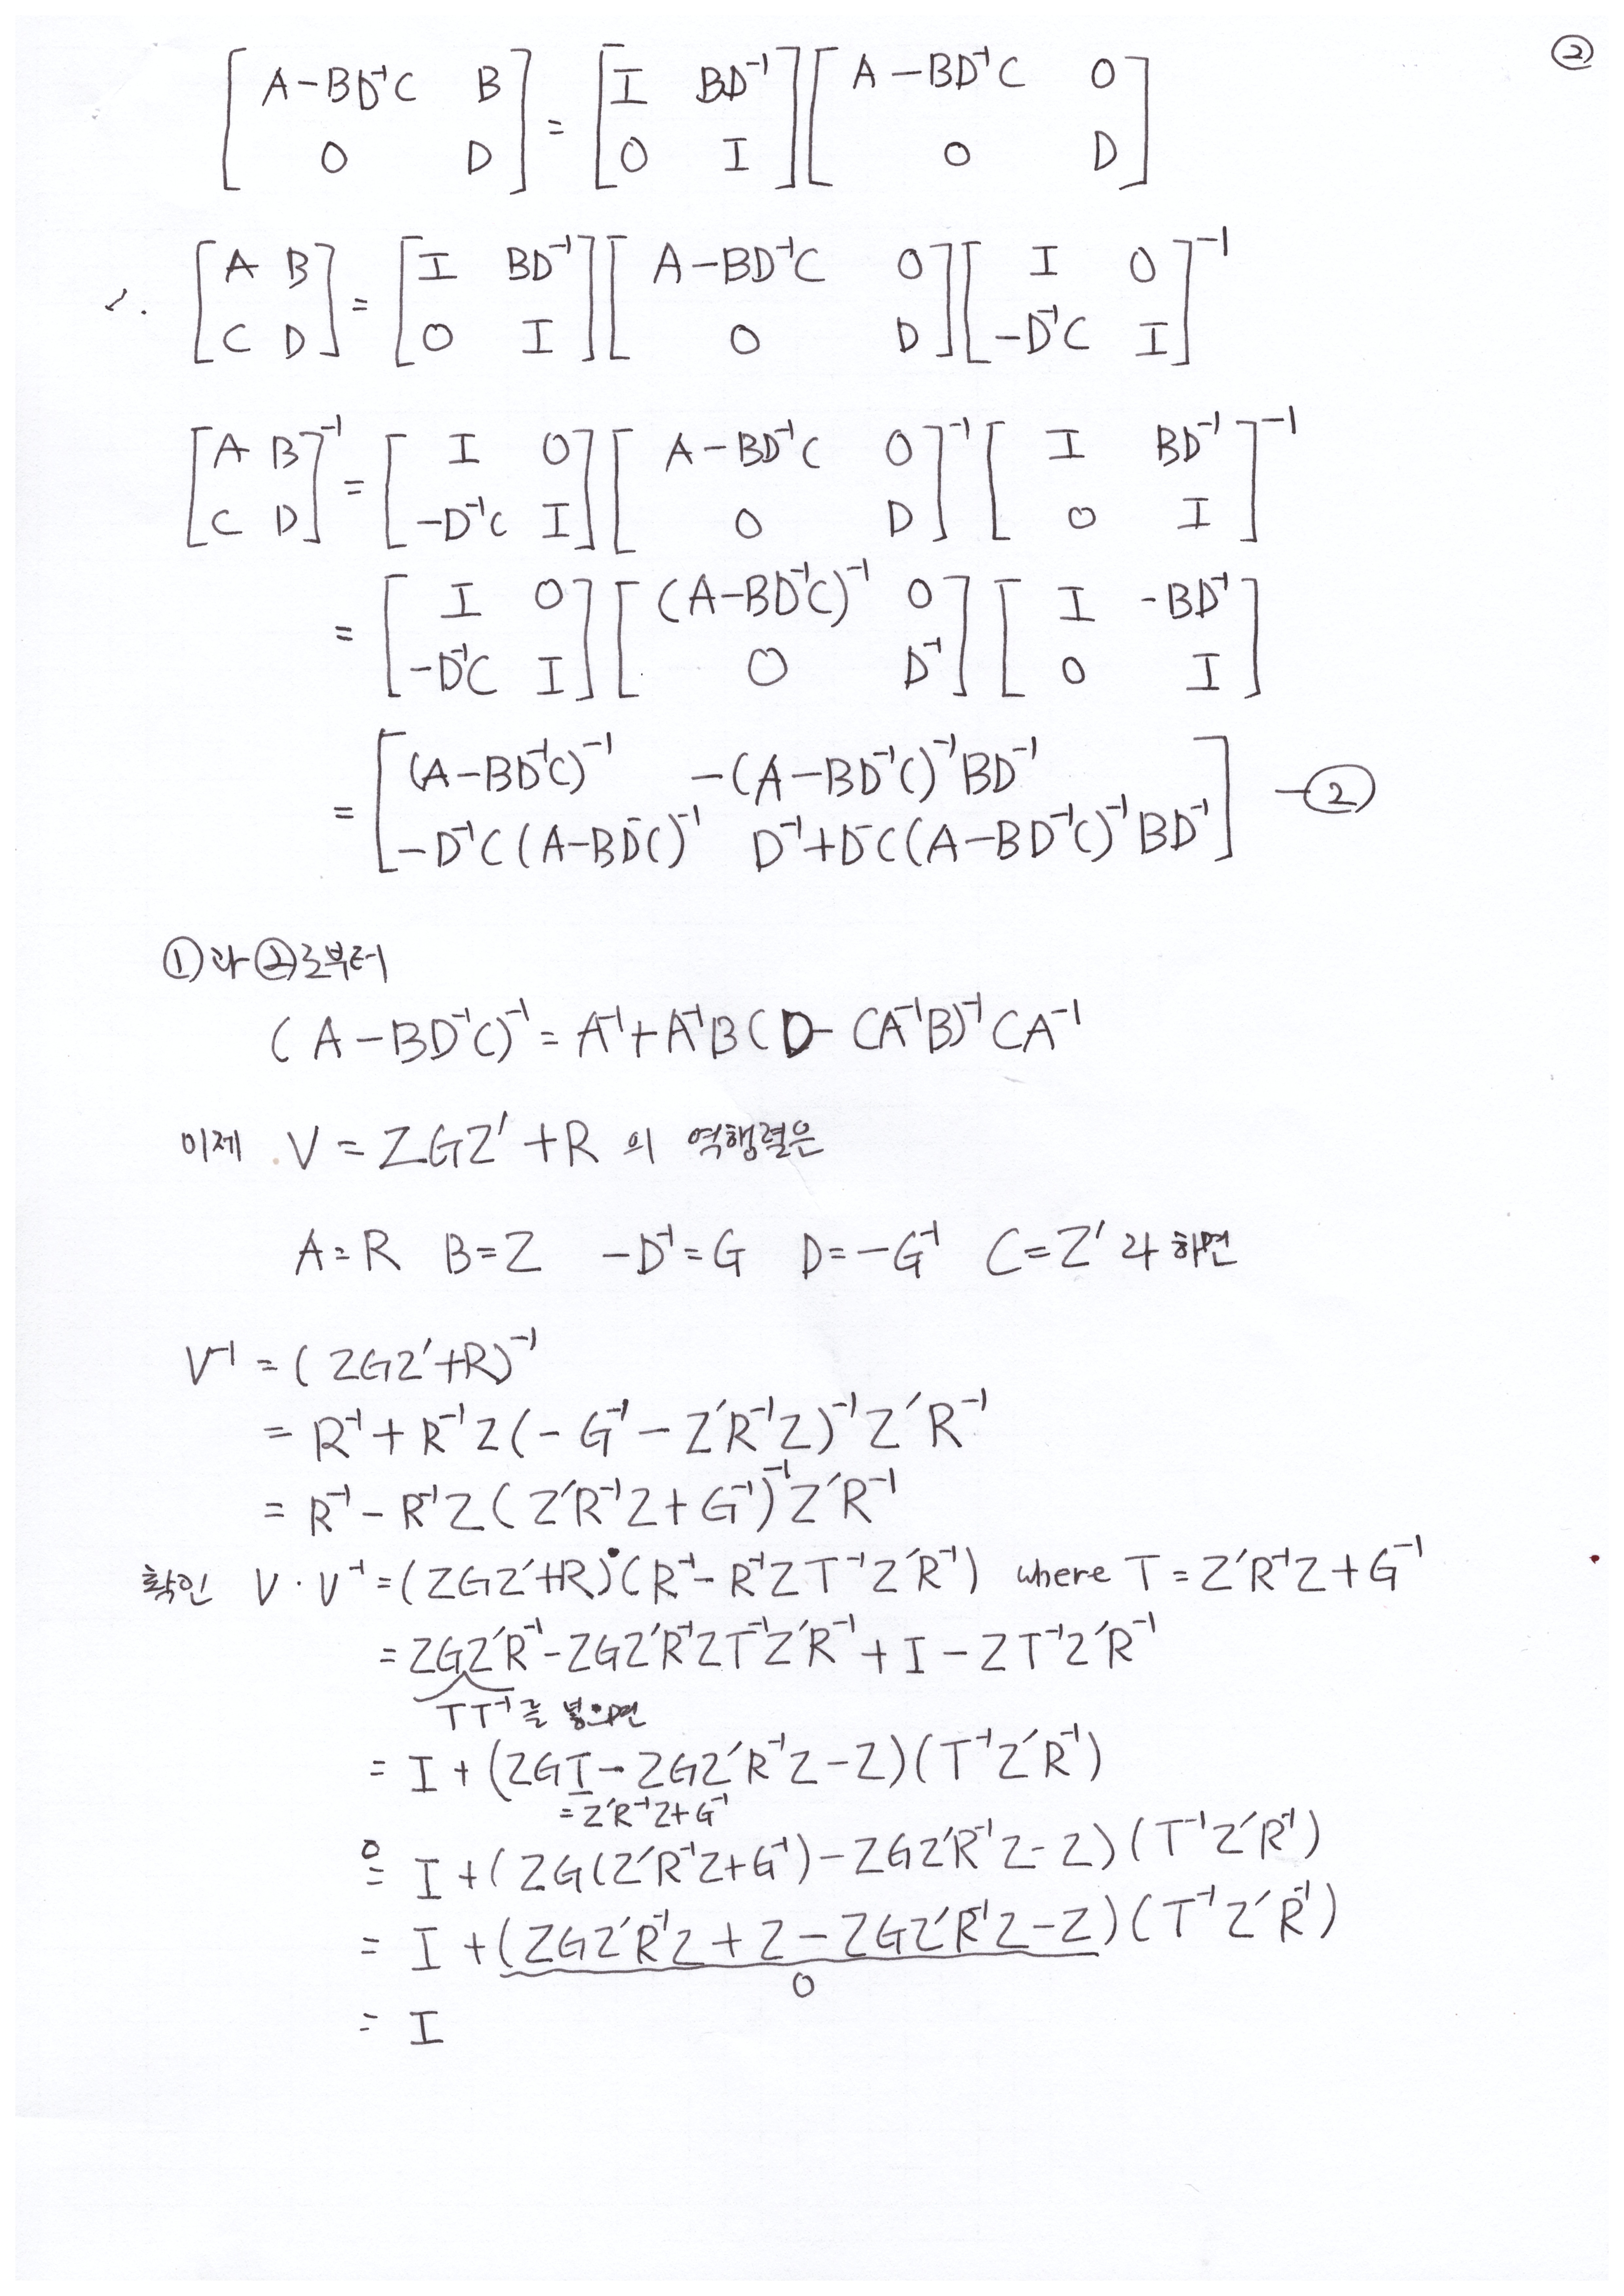 ②
[A-BD⁻¹C B; 0 D] = [I BD⁻¹; 0 I][A-BD⁻¹C 0; 0 D]
[A B; C D] = [I BD⁻¹; 0 I][A-BD⁻¹C 0; 0 D][I 0; -D⁻¹C I]⁻¹
[A B; C D]⁻¹ = [I 0; -D⁻¹C I][A-BD⁻¹C 0; 0 D]⁻¹[I BD⁻¹; 0 I]⁻¹
= [I 0; -D⁻¹C I][(A-BD⁻¹C)⁻¹ 0; 0 D⁻¹][I -BD⁻¹; 0 I]
= [(A-BD⁻¹C)⁻¹ -(A-BD⁻¹C)⁻¹BD⁻¹; -D⁻¹C(A-BD⁻C)⁻¹ D⁻¹+D⁻C(A-BD⁻¹C)⁻¹BD⁻¹] -②
①과 ②로부터
(A-BD⁻¹C)⁻¹ = A⁻¹+A⁻¹B(D-CA⁻¹B)⁻¹CA⁻¹
이제 V = ZGZ′+R 의 역행렬은
A=R B=Z -D⁻¹=G D=-G⁻¹ C=Z′ 라 하면
V⁻¹ = (ZGZ′+R)⁻¹
= R⁻¹+R⁻¹Z(-G⁻¹-Z′R⁻¹Z)⁻¹Z′R⁻¹
= R⁻¹-R⁻¹Z(Z′R⁻¹Z+G⁻¹)⁻¹Z′R⁻¹
확인 V·V⁻¹ = (ZGZ′+R)·(R⁻¹-R⁻¹ZT⁻¹Z′R⁻¹) where T=Z′R⁻¹Z+G⁻¹
= ZGZ′R⁻¹-ZGZ′R⁻¹ZT⁻¹Z′R⁻¹+I-ZT⁻¹Z′R⁻¹
TT⁻¹를 넣으면
= I+(ZGT-ZGZ′R⁻¹Z-Z)(T⁻¹Z′R⁻¹)
=Z′R⁻¹Z+G⁻¹
= I+(ZG(Z′R⁻¹Z+G⁻¹)-ZGZ′R⁻¹Z-Z)(T⁻¹Z′R⁻¹)
= I+(ZGZ′R⁻¹Z+Z-ZGZ′R⁻¹Z-Z)(T⁻¹Z′R⁻¹)
0
= I